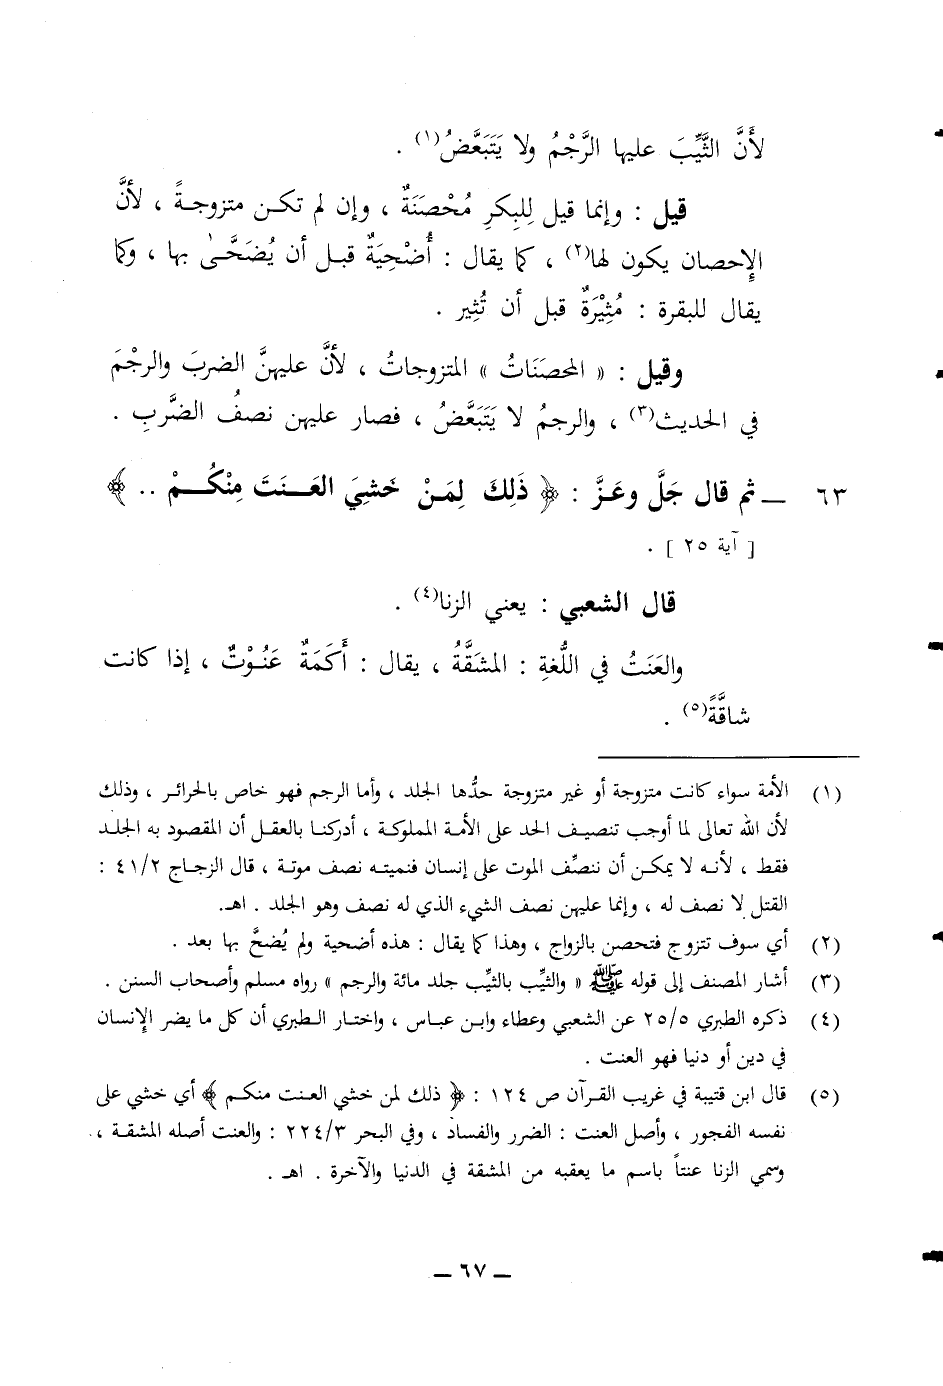 لأَنَّ الثَّيِّبَ عليها الرَّجْمُ ولا يَتَبَعَّضُ(١) .
قيل : وإنما قيل لِلبِكرِ مُحْصَنَةٌ ، وإن لم تكـن متزوجـةً ، لأنَّ
الإحصان يكون لها(٢) ، كما يقال : أُضْحِيَةٌ قبـل أن يُضَحَّىٰ بها ، وكما
يقال للبقرة : مُثِيْرَةٌ قبل أن تُثِير .
وقيل : « المحصَنَاتُ » المتزوجاتُ ، لأنَّ عليهنَّ الضربَ والرجْمَ
في الحديث(٣) ، والرجمُ لا يَتَبَعَّضُ ، فصار عليهن نصفُ الضَّربِ .
٦٣ ــ ثم قال جَلَّ وعَـزَّ : ﴿ ذَلِكَ لِمَنْ خَشِيَ العَـنَتَ مِنْكُـمْ .. ﴾
[ آية ٢٥ ] .
قال الشعبي : يعني الزنا(٤) .
والعَنَتُ في اللُّغةِ : المشَقَّةُ ، يقال : أَكَمَةٌ عَنُـوْتٌ ، إذا كانت
شاقَّةً(٥) .
(١) الأمة سواء كانت متزوجة أو غير متزوجة حدُّها الجلد ، وأما الرجم فهو خاص بالحرائـر ، وذلك
لأن الله تعالى لما أوجب تنصيـف الحد على الأمـة المملوكـة ، أدركنـا بالعقـل أن المقصـود به الجلـد
فقط ، لأنـه لا يمكـن أن ننصِّف الموت على إنسان فنميتـه نصف موتـة ، قال الزجـاج ٤١/٢ :
القتل لا نصف له ، وإنما عليهن نصف الشيء الذي له نصف وهو الجلد . اهـ.
(٢) أي سوف تتزوج فتحصن بالزواج ، وهذا كما يقال : هذه أضحية ولم يُضحَّ بها بعد .
(٣) أشار المصنف إلى قوله ﷺ « والثيِّب بالثيِّب جلد مائة والرجم » رواه مسلم وأصحاب السنن .
(٤) ذكره الطبري ٢٥/٥ عن الشعبي وعطاء وابـن عباس ، واختـار الـطبري أن كل ما يضر الإنسان
في دين أو دنيا فهو العنت .
(٥) قال ابن قتيبة في غريب القـرآن ص ١٢٤ : ﴿ ذلك لمن خشي العـنت منكـم ﴾ أي خشي على
نفسه الفجور ، وأصل العنت : الضرر والفساد ، وفي البحر ٢٢٤/٣ : والعنت أصله المشقـة ،
وسمي الزنا عنتاً باسم ما يعقبه من المشقة في الدنيا والآخرة . اهـ .
ــ ٦٧ ــ